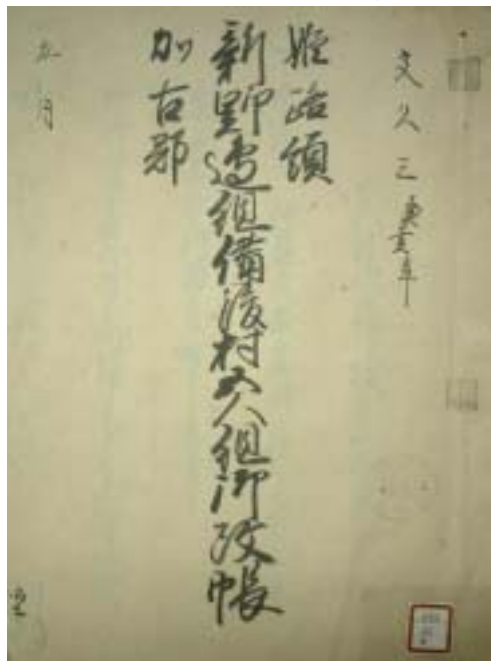 文久三癸亥年
姫路領
新野邊組備後村五人組御改帳
加古郡
五月